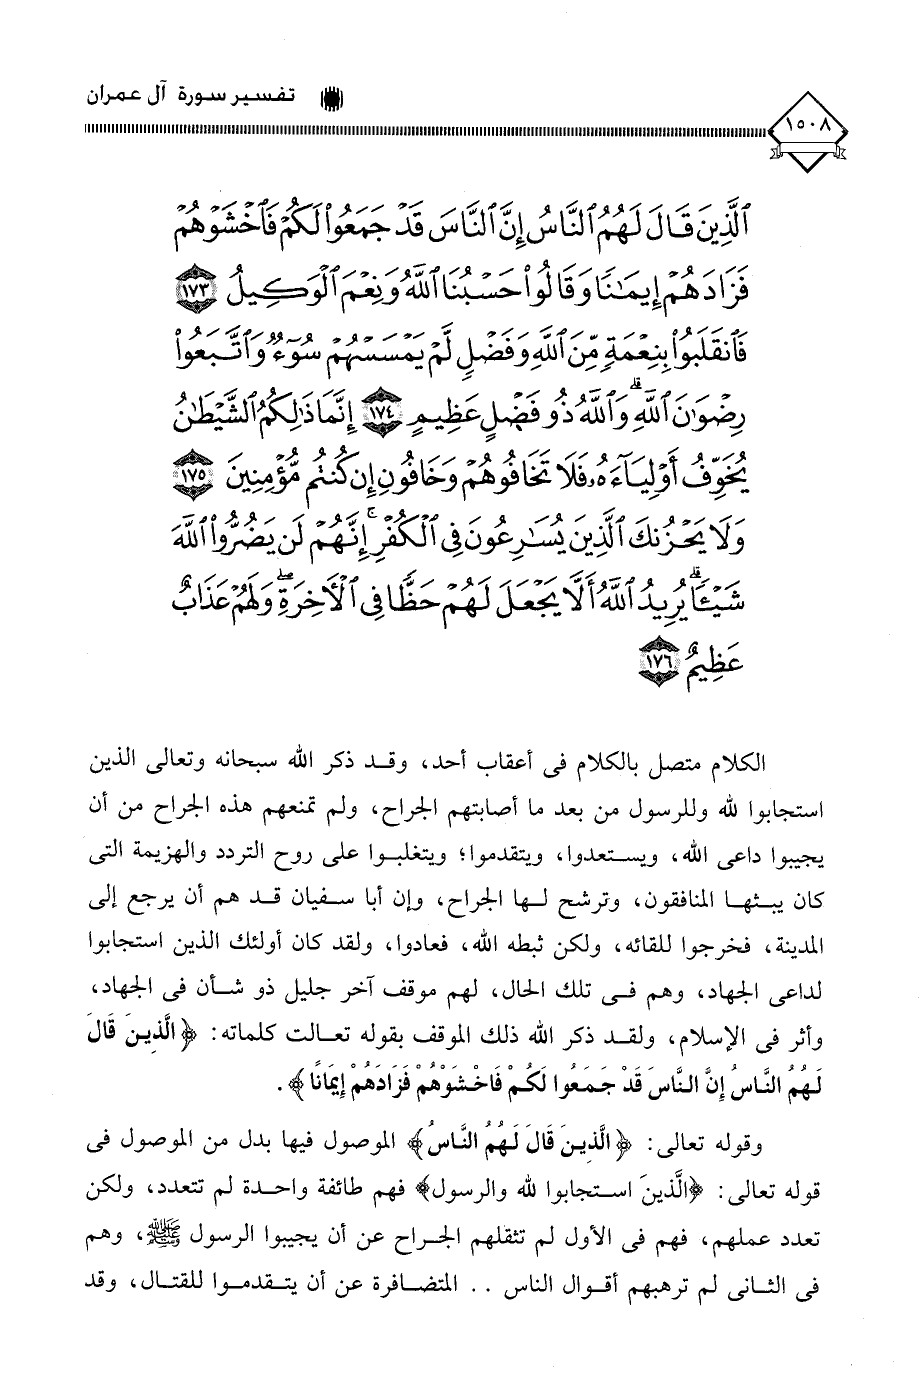 تفسير سورة آل عمران
١٥٠٨
ٱلَّذِينَ قَالَ لَهُمُ ٱلنَّاسُ إِنَّ ٱلنَّاسَ قَدۡ جَمَعُواْ لَكُمۡ فَٱخۡشَوۡهُمۡ
فَزَادَهُمۡ إِيمَٰنٗا وَقَالُواْ حَسۡبُنَا ٱللَّهُ وَنِعۡمَ ٱلۡوَكِيلُ ١٧٣
فَٱنقَلَبُواْ بِنِعۡمَةٖ مِّنَ ٱللَّهِ وَفَضۡلٖ لَّمۡ يَمۡسَسۡهُمۡ سُوٓءٞ وَٱتَّبَعُواْ
رِضۡوَٰنَ ٱللَّهِۗ وَٱللَّهُ ذُو فَضۡلٍ عَظِيمٍ ١٧٤ إِنَّمَا ذَٰلِكُمُ ٱلشَّيۡطَٰنُ
يُخَوِّفُ أَوۡلِيَآءَهُۥ فَلَا تَخَافُوهُمۡ وَخَافُونِ إِن كُنتُم مُّؤۡمِنِينَ ١٧٥
وَلَا يَحۡزُنكَ ٱلَّذِينَ يُسَٰرِعُونَ فِي ٱلۡكُفۡرِۚ إِنَّهُمۡ لَن يَضُرُّواْ ٱللَّهَ
شَيۡـٔٗاۗ يُرِيدُ ٱللَّهُ أَلَّا يَجۡعَلَ لَهُمۡ حَظّٗا فِي ٱلۡأٓخِرَةِۖ وَلَهُمۡ عَذَابٌ
عَظِيمٌ ١٧٦
الكلام متصل بالكلام فى أعقاب أحد، وقد ذكر الله سبحانه وتعالى الذين
استجابوا لله وللرسول من بعد ما أصابتهم الجراح، ولم تمنعهم هذه الجراح من أن
يجيبوا داعى الله، ويستعدوا، ويتقدموا؛ ويتغلبوا على روح التردد والهزيمة التى
كان يبثها المنافقون، وترشح لها الجراح، وإن أبا سفيان قد هم أن يرجع إلى
المدينة، فخرجوا للقائه، ولكن ثبطه الله، فعادوا، ولقد كان أولئك الذين استجابوا
لداعى الجهاد، وهم فى تلك الحال، لهم موقف آخر جليل ذو شأن فى الجهاد،
وأثر فى الإسلام، ولقد ذكر الله ذلك الموقف بقوله تعالت كلماته: ﴿الَّذِينَ قَالَ
لَهُمُ النَّاسُ إِنَّ النَّاسَ قَدْ جَمَعُوا لَكُمْ فَاخْشَوْهُمْ فَزَادَهُمْ إِيمَانًا﴾.
وقوله تعالى: ﴿الَّذِينَ قَالَ لَهُمُ النَّاسُ﴾ الموصول فيها بدل من الموصول فى
قوله تعالى: ﴿الَّذينَ استجابوا لله والرسول﴾ فهم طائفة واحدة لم تتعدد، ولكن
تعدد عملهم، فهم فى الأول لم تثقلهم الجراح عن أن يجيبوا الرسول ﷺ، وهم
فى الثانى لم ترهبهم أقوال الناس .. المتضافرة عن أن يتقدموا للقتال، وقد